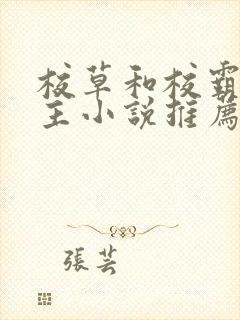 校草和校霸
主小說推薦
張芸